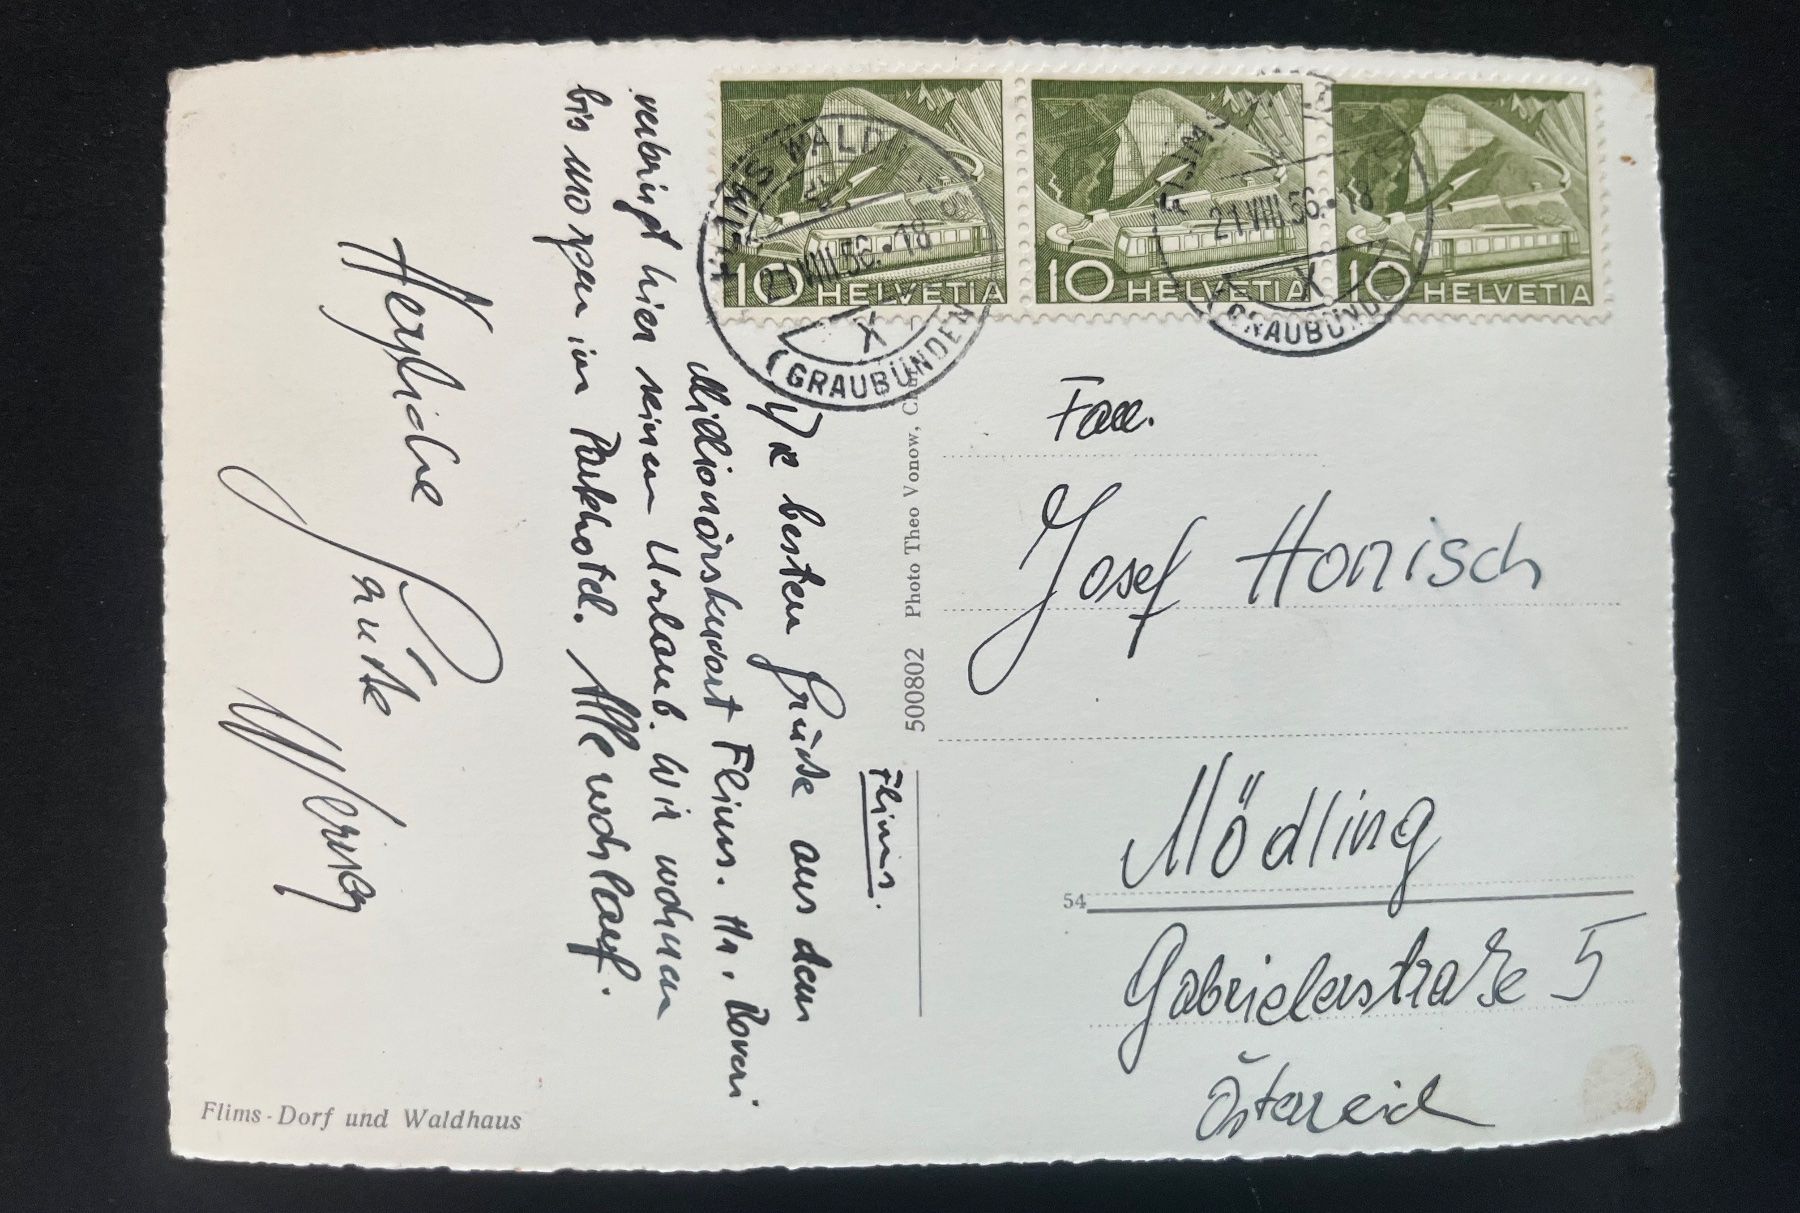 Flims.
Die besten Grüße aus dem
Millionärskurort Flims. Hr. Boveri
verbringt hier seinen Urlaub. Wir wohnen
bis morgen im Parkhotel. Alle wohlauf.
Herzliche
Grüße
10 HELVETIA
10 HELVETIA
10 HELVETIA
FLIMS WALDHAUS
21.VIII.56.-18
X
(GRAUBÜNDEN)
FLIMS
21.VIII.56.-18
X
(GRAUBÜND
Fam.
Josef Honisch
Mödling
Gabrielerstraße 5
Österreich
500802 Photo Theo Vonow,
54
Flims-Dorf und Waldhaus